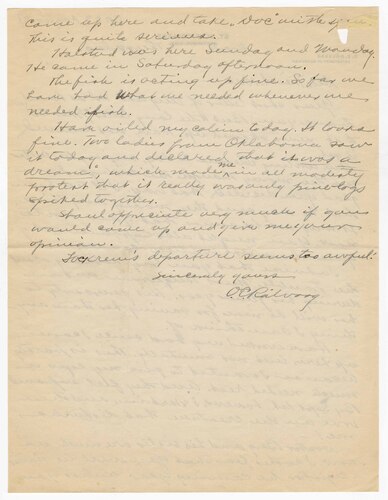 come up here and take "Doc" with the
This is quite serious.
Halsted was here Sunday and Monday.
He came in Saturday afternoon.
The fish is acting up fine. So far we
have had what we needed whenever we
needed fish.
Have oiled my cabin today. It looks
fine. Two ladies from Oklahoma saw
it today and declared "that it was a
dream", which made me in all modesty
protest that it really was only pine logs
spiked together.
Shall appreciate very much if you
would come up and give me your
opinion.
departure seems too awful!
Sincerely yours